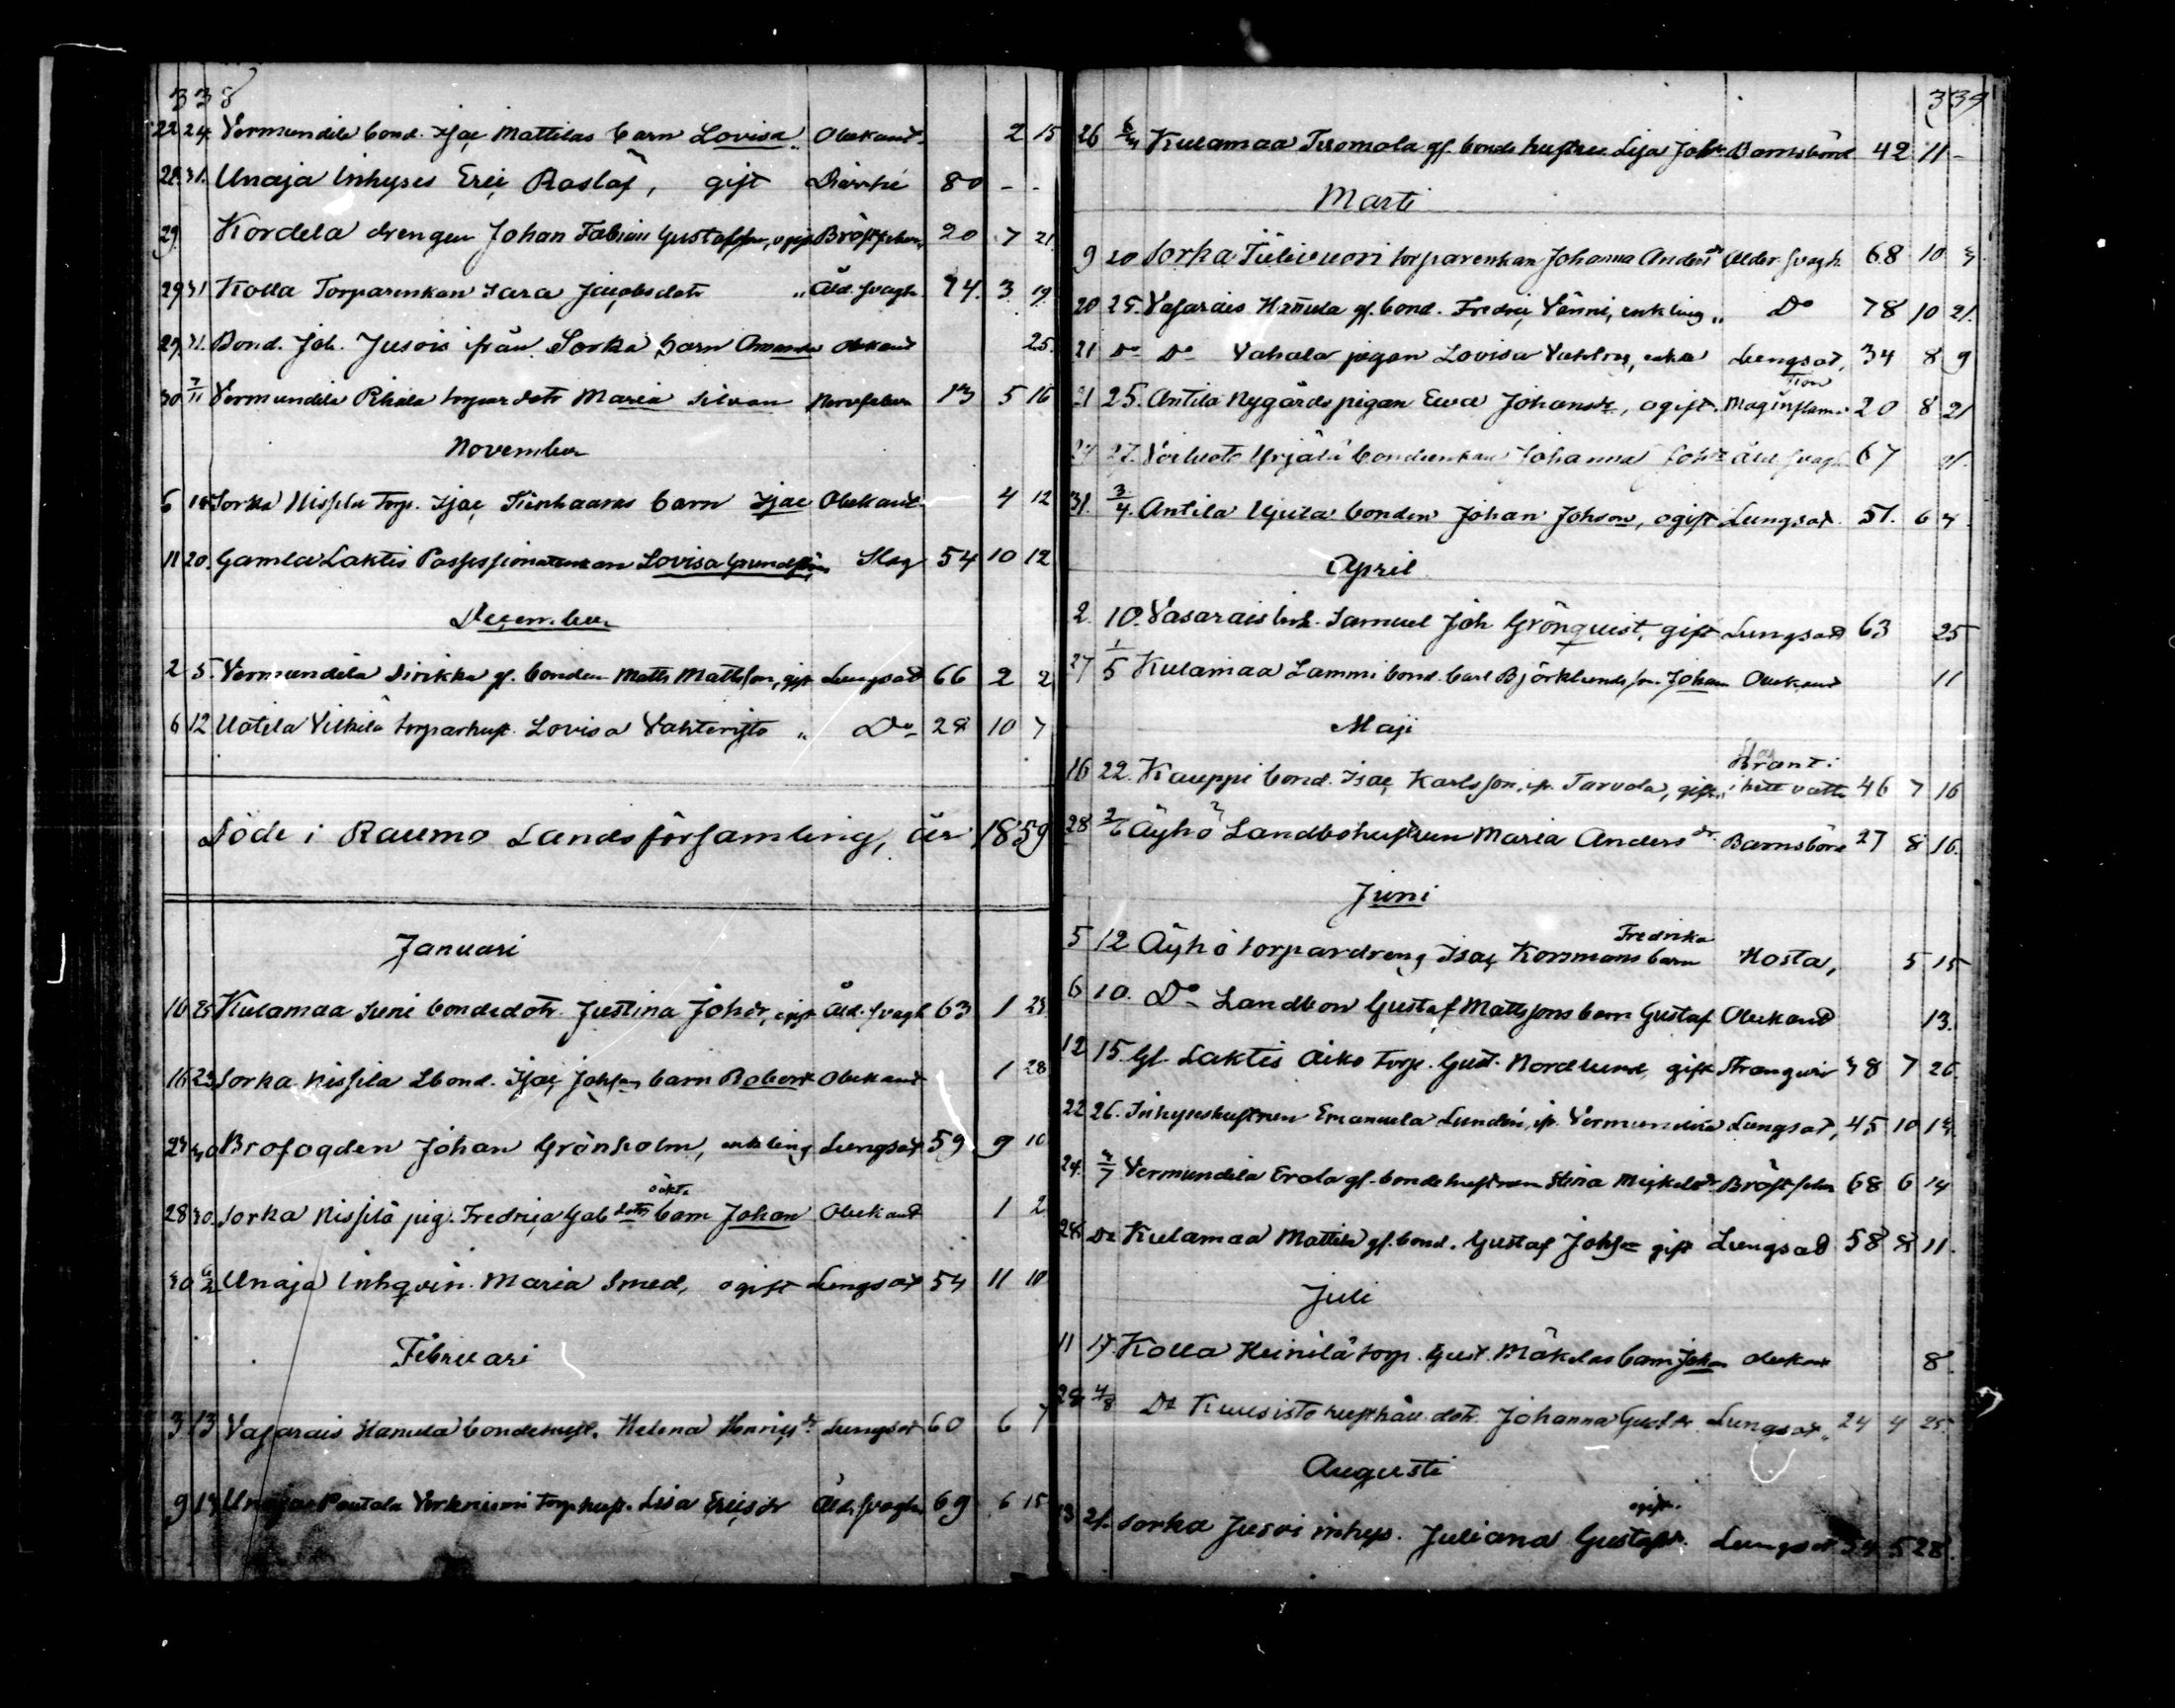 338
22 24 Vermundila bond. Isac Mattilas barn Lovisa Obekant 2 15
28 31. Unaja Inhyses Eric Raslöf, gift Diarrhé 80 - -
29. Kordela drengen Johan Fabian Gustafsson, ogift Bröst 20 7 21
29 31 Kolla Torparenkan Sara Jacobsdotr " Åld. svagh 74. 3 19.
29. 31. Bond. Joh. Jusois ifrån Sorka barn Amanda Obekant 25.
30 7/11 Vermundila Rihala torpar dotr Maria Silvan Nervfeber 13 5 16
November
6 14 Sorka Nissila Torp. Isac Tienhaaras barn Isac Obekant 4 12
11 20. Gamla Laktis Possessionatenkan Lovisa Slag 54 10 12
December
2 5. Vermundila Sirikka gf. bonden Matts Mattsson, gift Lungsot 66 2 2
6 12 Uotila Vilkilä torparhust. Lovisa Vahteristo " Do 28 10 7
Döde i Raumo Landsförsamling, år 1859
Januari
16 23 Kulamaa Suni bondedotr. Justina Johdr, ogift Åld. svagh 63 1 23
16 23 Sorka Nissila Lbond. Isac Johsons barn Robert Obekant 1 28
24 30 Brofogden Johan Grönholm, enkling Lungsot 59 9 10
28 30. Sorka Nissilä pig. Fredrica Gab dotrs oäkta barn Johan Obekant 1 2
30 6/2 Unaja Inhqvin. Maria Smed, ogift Lungsot 54 11 10
Februari
3 13 Vasarais Hanula bondehust. Helena Henricsdr Lungsot 60 6 7
9 13 Unaja Pantala torphust. Lisa Ericsdr Åld. svagh 69 6 15
339
26 6/3 Kulamaa Tuomola gf. bonde hustru Lisa Johdr Barnsbörd 42 11 -
Marti
9 20 Sorka Tiilivuori torparenkan Johanna Andersdr Ålder svagh. 68 10 3.
20 25. Vasarais Hanula gf. bond. Fredric Vänni, enkling " Do 78 10 21.
21 Do Do Vahala pigan Lovisa enka Lungsot, 34 8 9
21 25. Antila Nygårds pigan Ewa Johansdr, ogift. Maginflam.tion 20 8 21
24 27. Voiluoto Yrjälä bondeenkan Johanna Johdr åld svagh 67 21.
31. 3/4. Antila Ujula bonden Johan Johson, ogift Lungsot. 51. 6 4.
April
2. 10. Vasarais Inh. Samuel Joh Grönquist, gift Lungsot 63 25
27 1/5 Kulamaa Lammi bond. Carl Björklunds son Johan Obekant 11
Maji
16 22. Kauppi bond. Isac Karlsson, ifr. Tarvola, gift., i hett vatten 46 7 16
28 2/6 Äyhö Landbohustrun Maria Andersdr. Barnsbörd 27 8 16.
Juni
5 12 Äyhö torpardreng Isac Korsmans barn Fredrika Hosta, 5 15
6 10. Do Landbon Gustaf Mattssons barn Gustaf Obekant 13.
12 15. Gl. Laktis Aiko torp. Gust. Nordlund, gift Stranguri 38 7 26.
22 26. Inhyseshustrun Emanuela Lundén, ifr. Vermundila Lungsot, 45 10 13.
24. 3/7 Vermundila Erola gf. bondehustrun Stina Mickelsdr. Bröst 68 6 14
28. Do Kulamaa Mattila gf. bond. Gustaf Johson gift Lungsot 58 8 11.
Juli
11 17. Kolla Heinilä torp. Gust. Mäkelas barn Johan Obekant 8.
28 4/8 Do Kuusisto dotr. Johanna Gustdr. Lungsot " 24 4 25.
Augusti
13 21. Sorka Jusoi inhys. Juliana Gustafsdr. ogift. Lungsot 54 5 28.